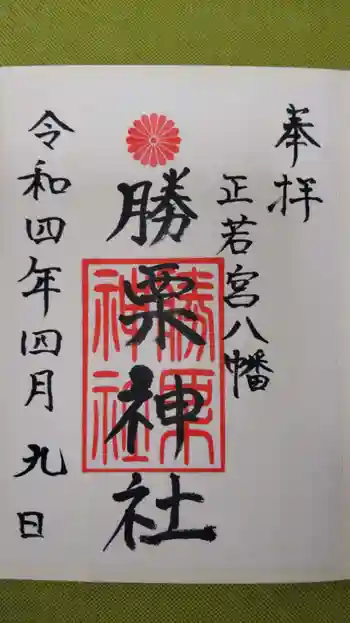 奉拝
正若宮八幡
勝栗神社
勝栗
神社
令和四年四月九日